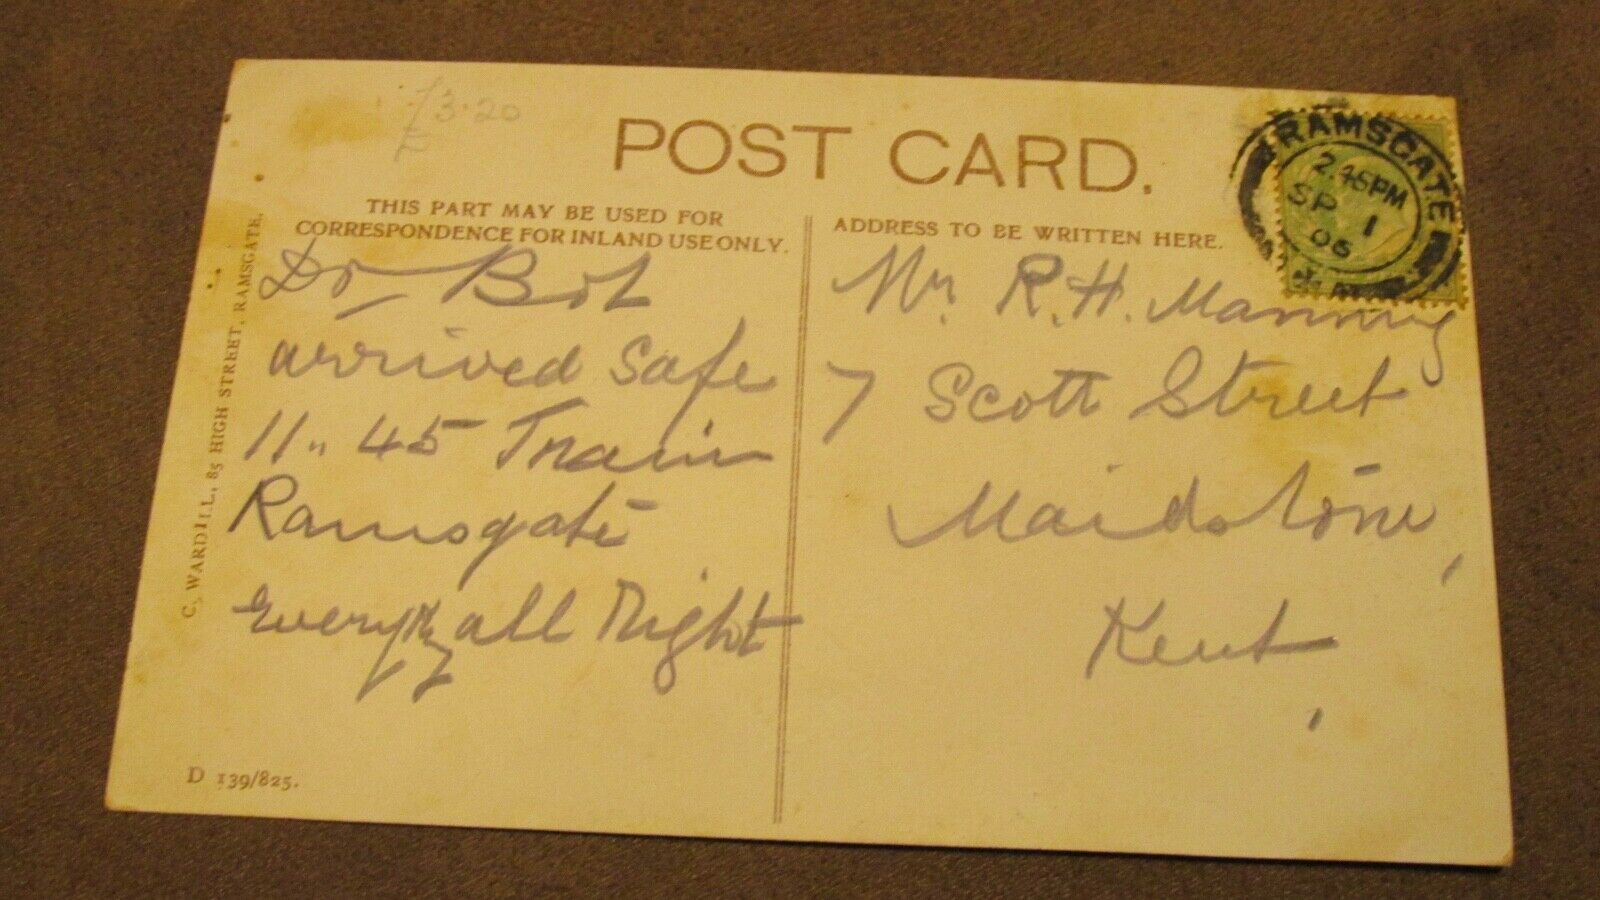 /3.20
POST CARD.
THIS PART MAY BE USED FOR
CORRESPONDENCE FOR INLAND USE ONLY.
ADDRESS TO BE WRITTEN HERE.
RAMSGATE
2.45PM
SP 1
06
Dr Bob
arrived Safe
11.45 Train
Ramsgate
all Right
Mr. R. H. Manning
7 Scott Street
Maidstone,
Kent,
C. WARDILL, 85 HIGH STREET, RAMSGATE.
D 139/825.